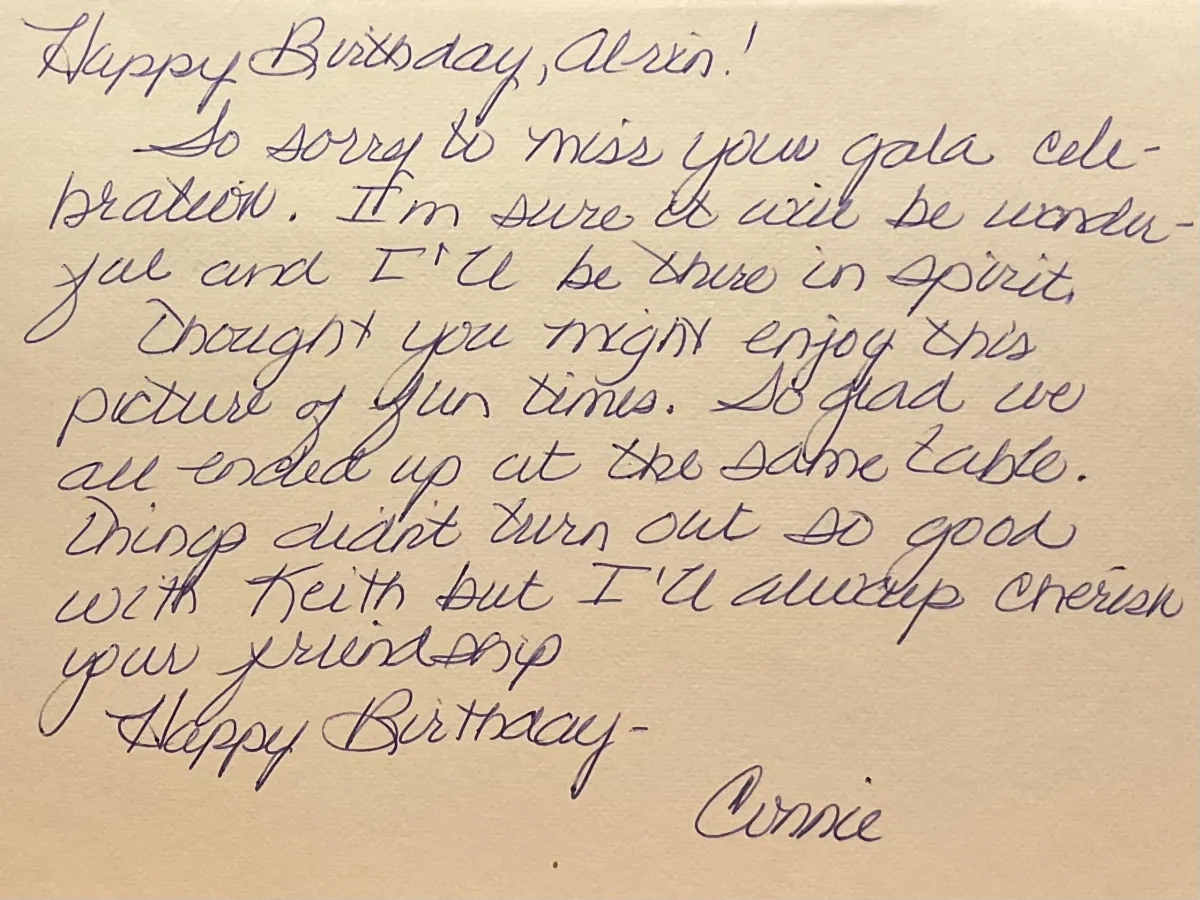 Happy Birthday, Alvin!
So sorry to miss your gala cele-
bration. I'm sure it will be wonder-
ful and I'll be there in spirit.
Thought you might enjoy this
picture of fun times. So glad we
all ended up at the same table.
Things didn't turn out so good
with Keith but I'll always cherish
your friendship
Happy Birthday-
Connie